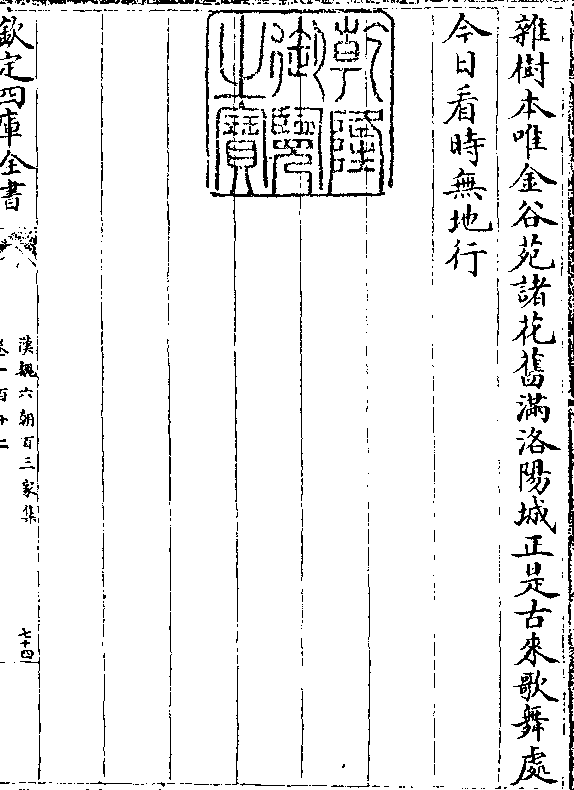 雜樹本唯金谷苑諸花舊滿洛陽城正是古來歌舞處
今日看時無地行
乾隆御覽之寶
欽定四庫全書
漢魏六朝百三家集
七十四